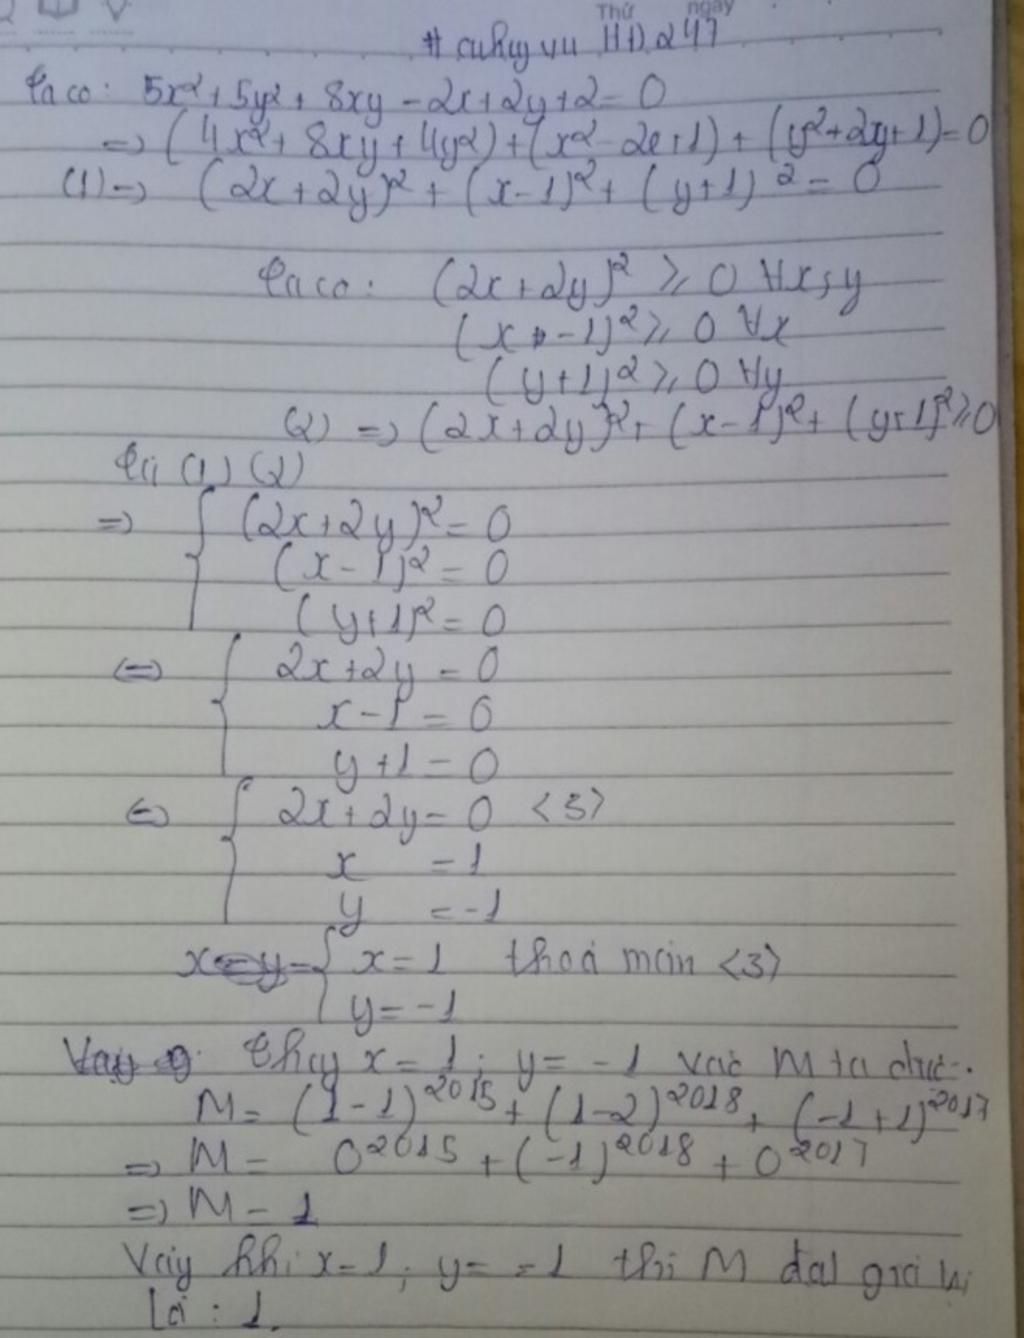 Thứ ngày
# cuhuyvu HD247
Ta co: 5x² + 5y² + 8xy - 2x + 2y + 2 = 0
=> (4x² + 8xy + 4y²) + (x² - 2x + 1) + (y² + 2y + 1) = 0
(1) => (2x + 2y)² + (x - 1)² + (y + 1)² = 0
Ta co: (2x + 2y)² ≥ 0 ∀x; y
(x - 1)² ≥ 0 ∀x
(y + 1)² ≥ 0 ∀y
(2) => (2x + 2y)² + (x - 1)² + (y + 1)² ≥ 0
Từ (1) (2)
=> { (2x + 2y)² = 0
(x - 1)² = 0
(y + 1)² = 0
<=> { 2x + 2y = 0
x - 1 = 0
y + 1 = 0
<=> { 2x + 2y = 0 <3>
x = 1
y = -1
{ x = 1 thoả mãn <3>
y = -1
Thay x = 1; y = -1 vào M ta được:
M = (1 - 1)^2015 + (1 - 2)^2018 + (-1 + 1)^2017
=> M = 0^2015 + (-1)^2018 + 0^2017
=> M = 1
Vậy khi x = 1; y = -1 thì M đạt giá trị
là : 1.